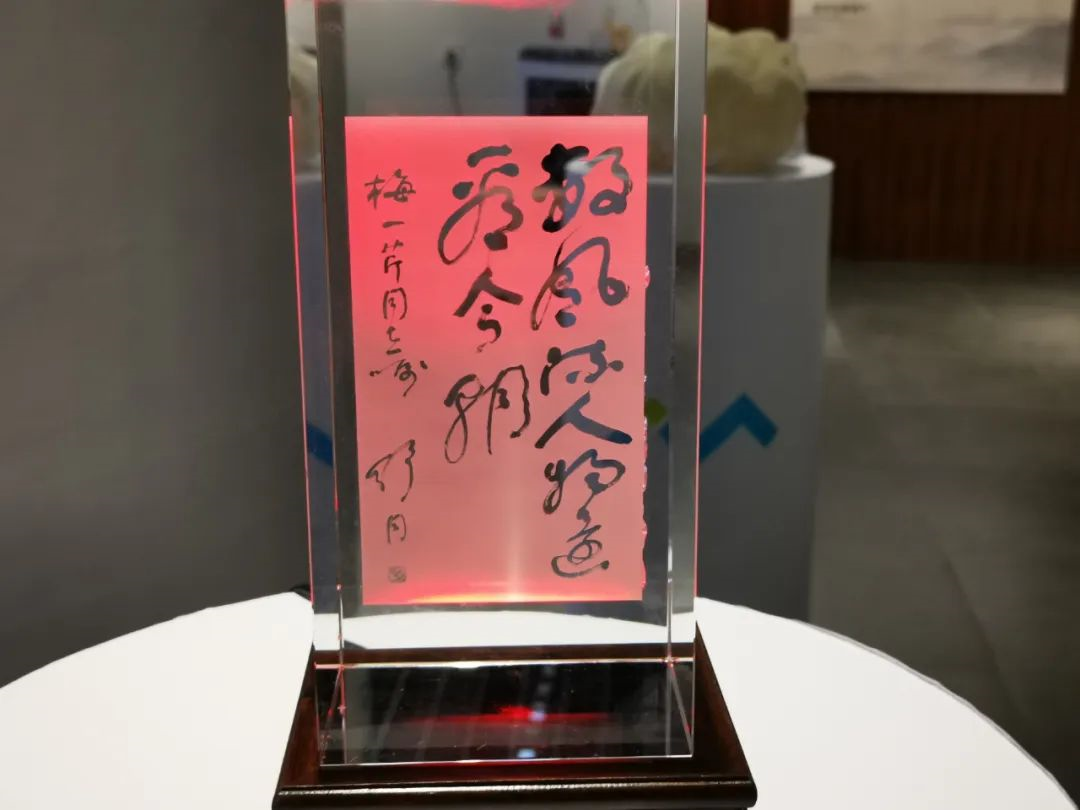 数风流人物还
看今朝
梅一芹同志嘱
舒同